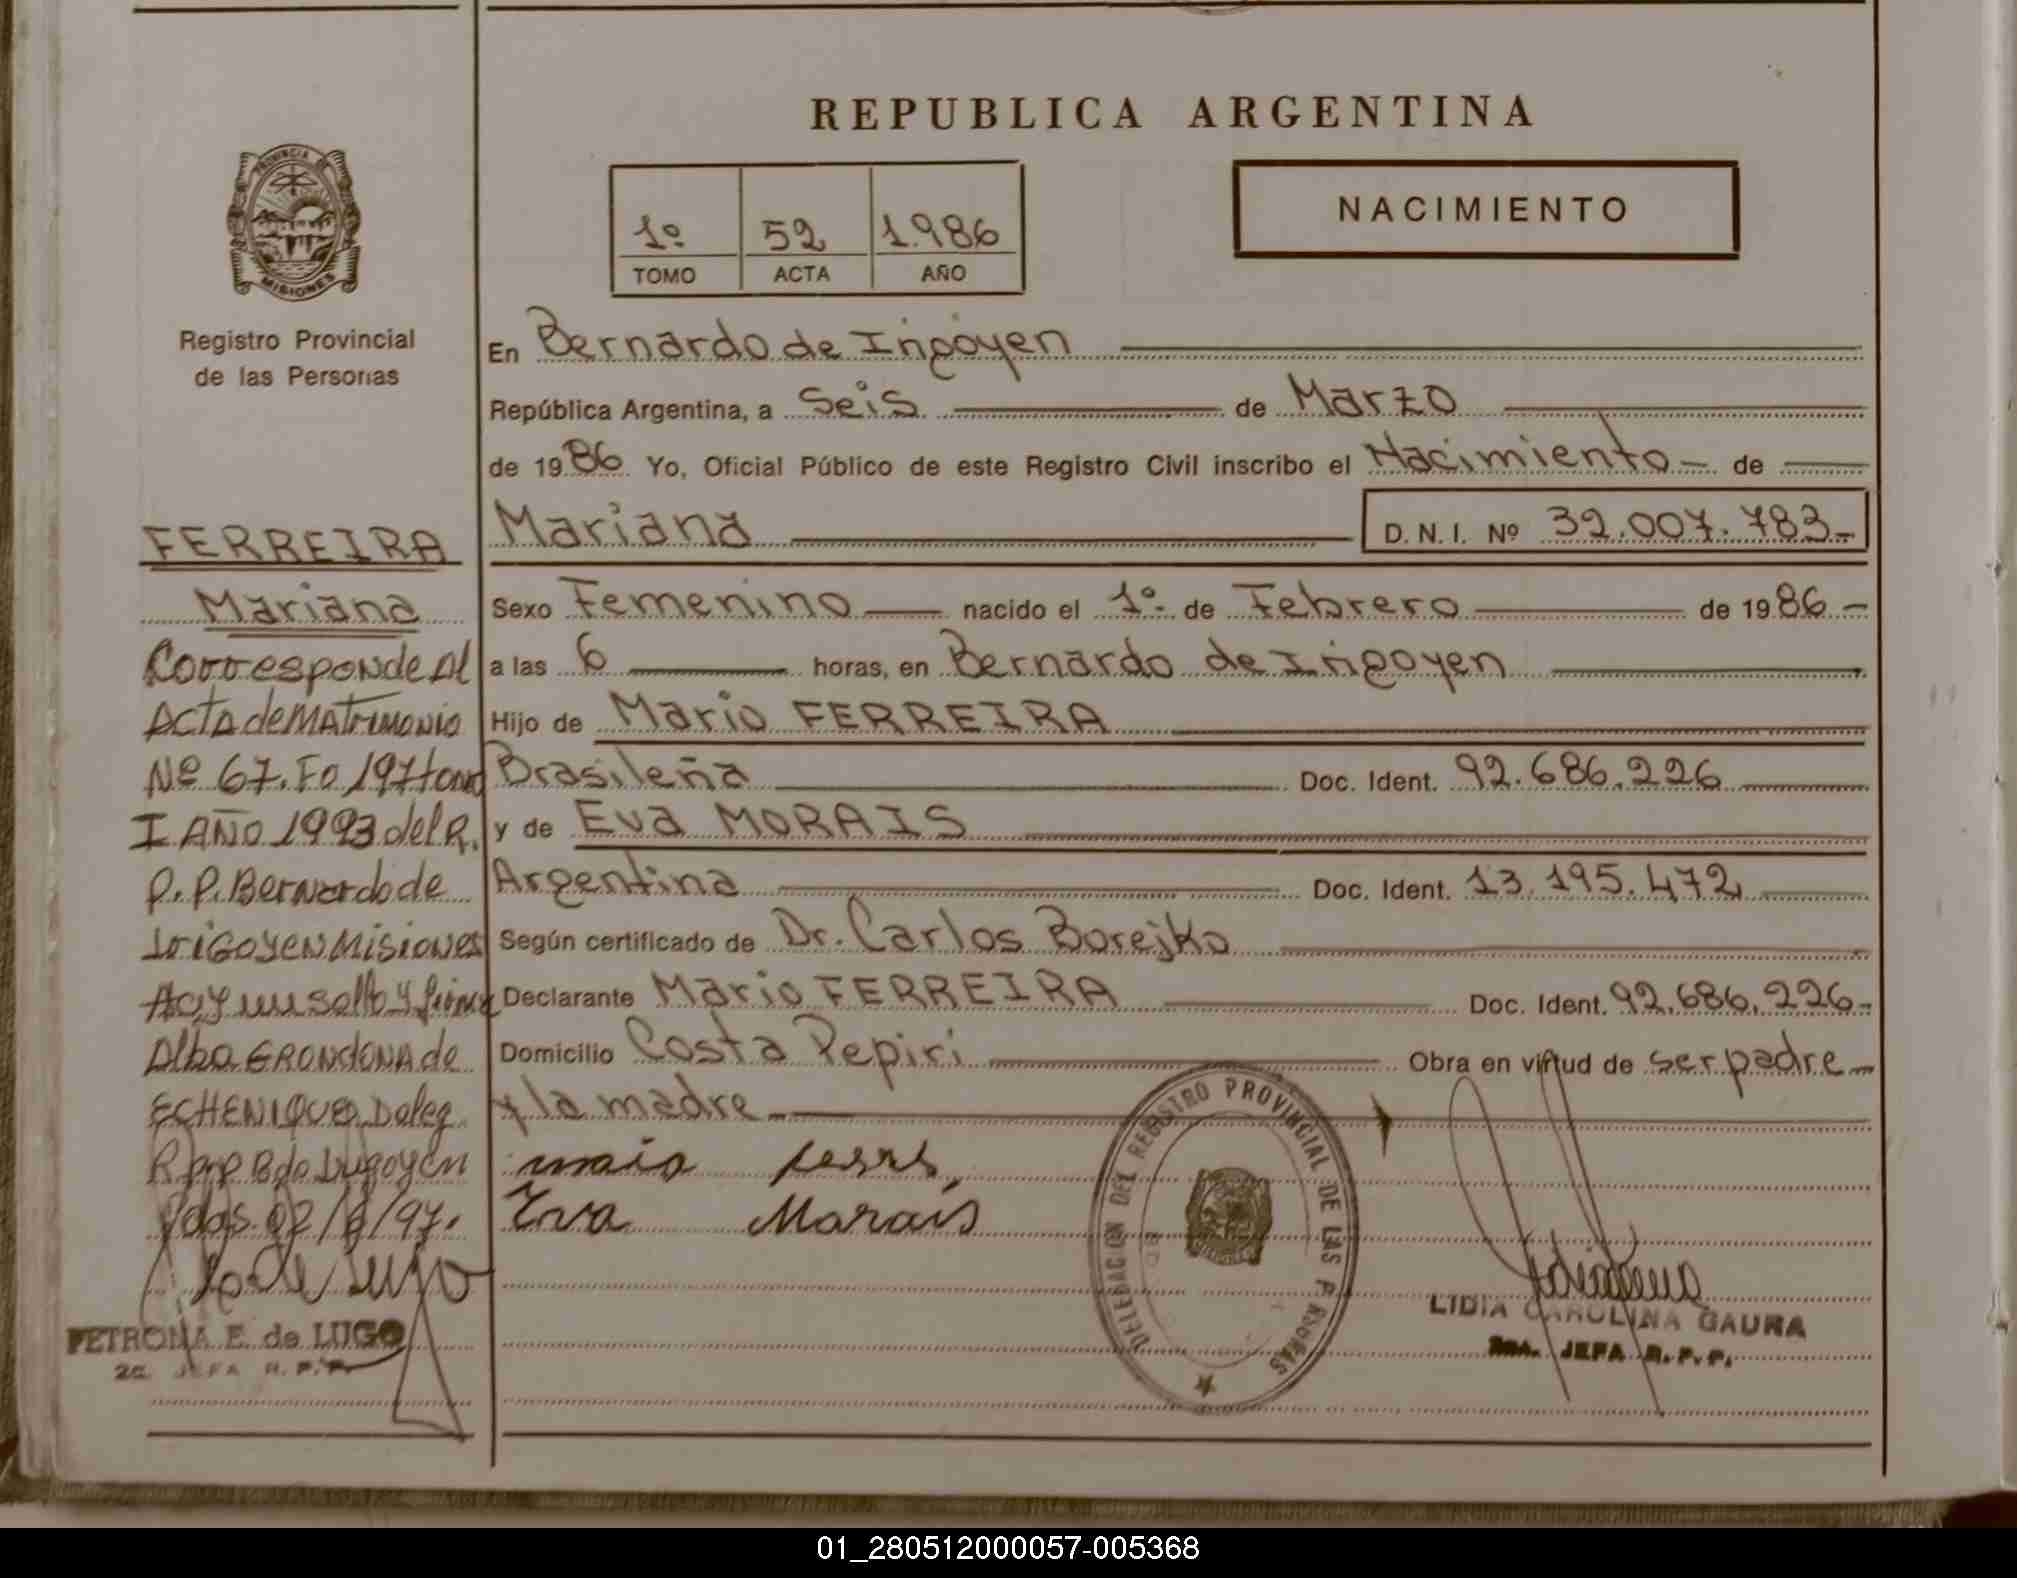 REPUBLICA ARGENTINA
NACIMIENTO
1º 52 1.986
TOMO ACTA AÑO
PROVINCIA DE
MISIONES
Registro Provincial
de las Personas
FERREIRA
Mariana
Corresponde Al
Acta de MAtrimonio
Nº 67. Fo 197 tomo
I AÑO 1993 del R.
P. P. Bernardo de
IriGoyen Misiones
Hay un sello y firma
Alba GRONDONA de
ECHENIQUE Deleg.
R.P.P. Bdo Irigoyen
Pdas. 02/9/97.
PETRONA E. de LUGO
2a. JEFA R.P.P.
En Bernardo de Irigoyen
República Argentina, a Seis de Marzo
de 1986 Yo, Oficial Público de este Registro Civil inscribo el Nacimiento - de
Mariana D. N. I. Nº 32.007.783-
Sexo Femenino nacido el 1º de Febrero de 1986 -
a las 6 horas, en Bernardo de Irigoyen
Hijo de Mario FERREIRA
Brasileña Doc. Ident. 92.686.226
y de Eva MORAIS
Argentina Doc. Ident. 13.195.472
Según certificado de Dr. Carlos Borejko
Declarante Mario FERREIRA Doc. Ident. 92.686.226-
Domicilio Costa Pepiri Obra en virtud de ser padre
y la madre
Eva Morais
DELEGACION DEL REGISTRO PROVINCIAL DE LAS PERSONAS
LIDIA CAROLINA GAURA
2DA. JEFA R.P.P.
01_280512000057-005368